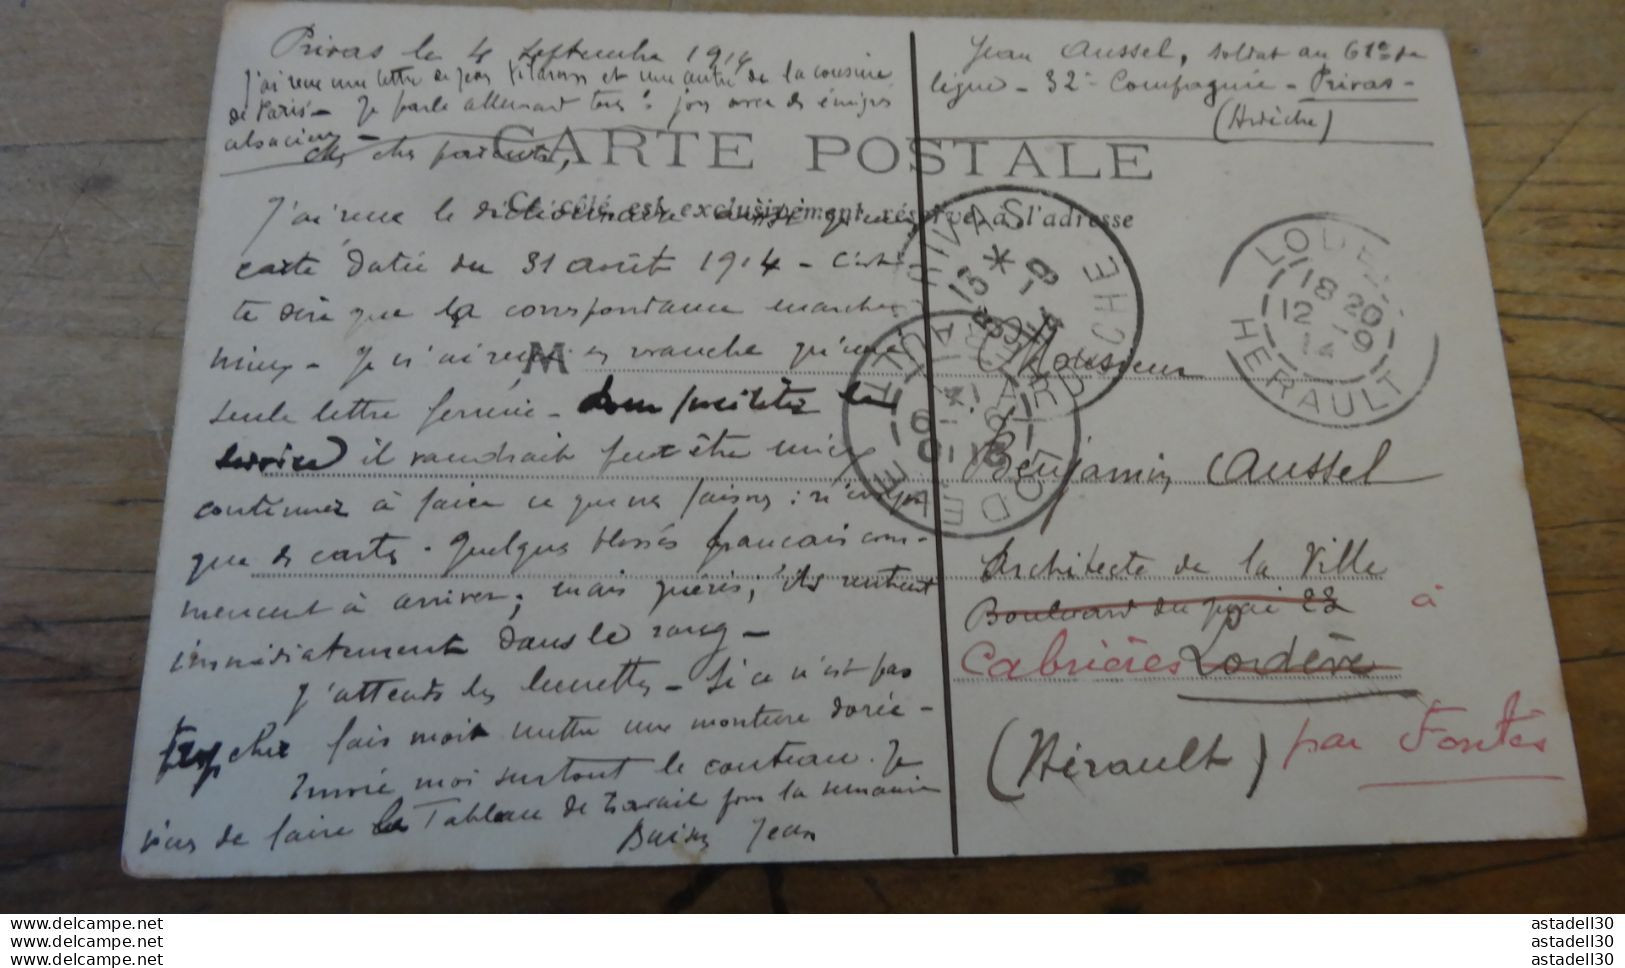 Privas le 4 septembre 1914
J'ai reçu une lettre de Jean et une autre de la cousine
de Paris - Je parle allemand tous les jours avec des émigrés
alsaciens -
chers parents,
J'ai reçu le dictionnaire ainsi qu'une
carte datée du 31 août 1914 - C'est
te dire que la correspondance marche
mieux - Je n'ai reçu en revanche qu'une
seule lettre fermée - Pour faciliter le
service il vaudrait peut être mieux
continuer à faire ce que nous faisons : n'envoyer
que des cartes. Quelques blessés français com-
mencent à arriver ; mais guéris, ils rentrent
immédiatement dans le rang -
J'attends les lunettes - Si ce n'est pas
trop cher fais moi mettre une monture dorée -
Envoie moi surtout le couteau. Je
viens de faire le Tableau de Travail pour la semaine
Baisers Jean
Jean Aussel, soldat au 61e de
ligne - 32e Compagnie - Privas -
(Ardèche)
CARTE POSTALE
Ce côté est exclusivement réservé à l'adresse
PRIVAS
ARDÈCHE
LODÈVE
HERAULT
18 20
12 - 9
14
LODÈVE
HERAULT
M
Monsieur
Benjamin Aussel
Architecte de la Ville
Boulevard du quai 22 à
Cabrières Lodève
(Hérault) par Fontès
www.delcampe.net
www.delcampe.net
www.delcampe.net
astadell30
astadell30
astadell30